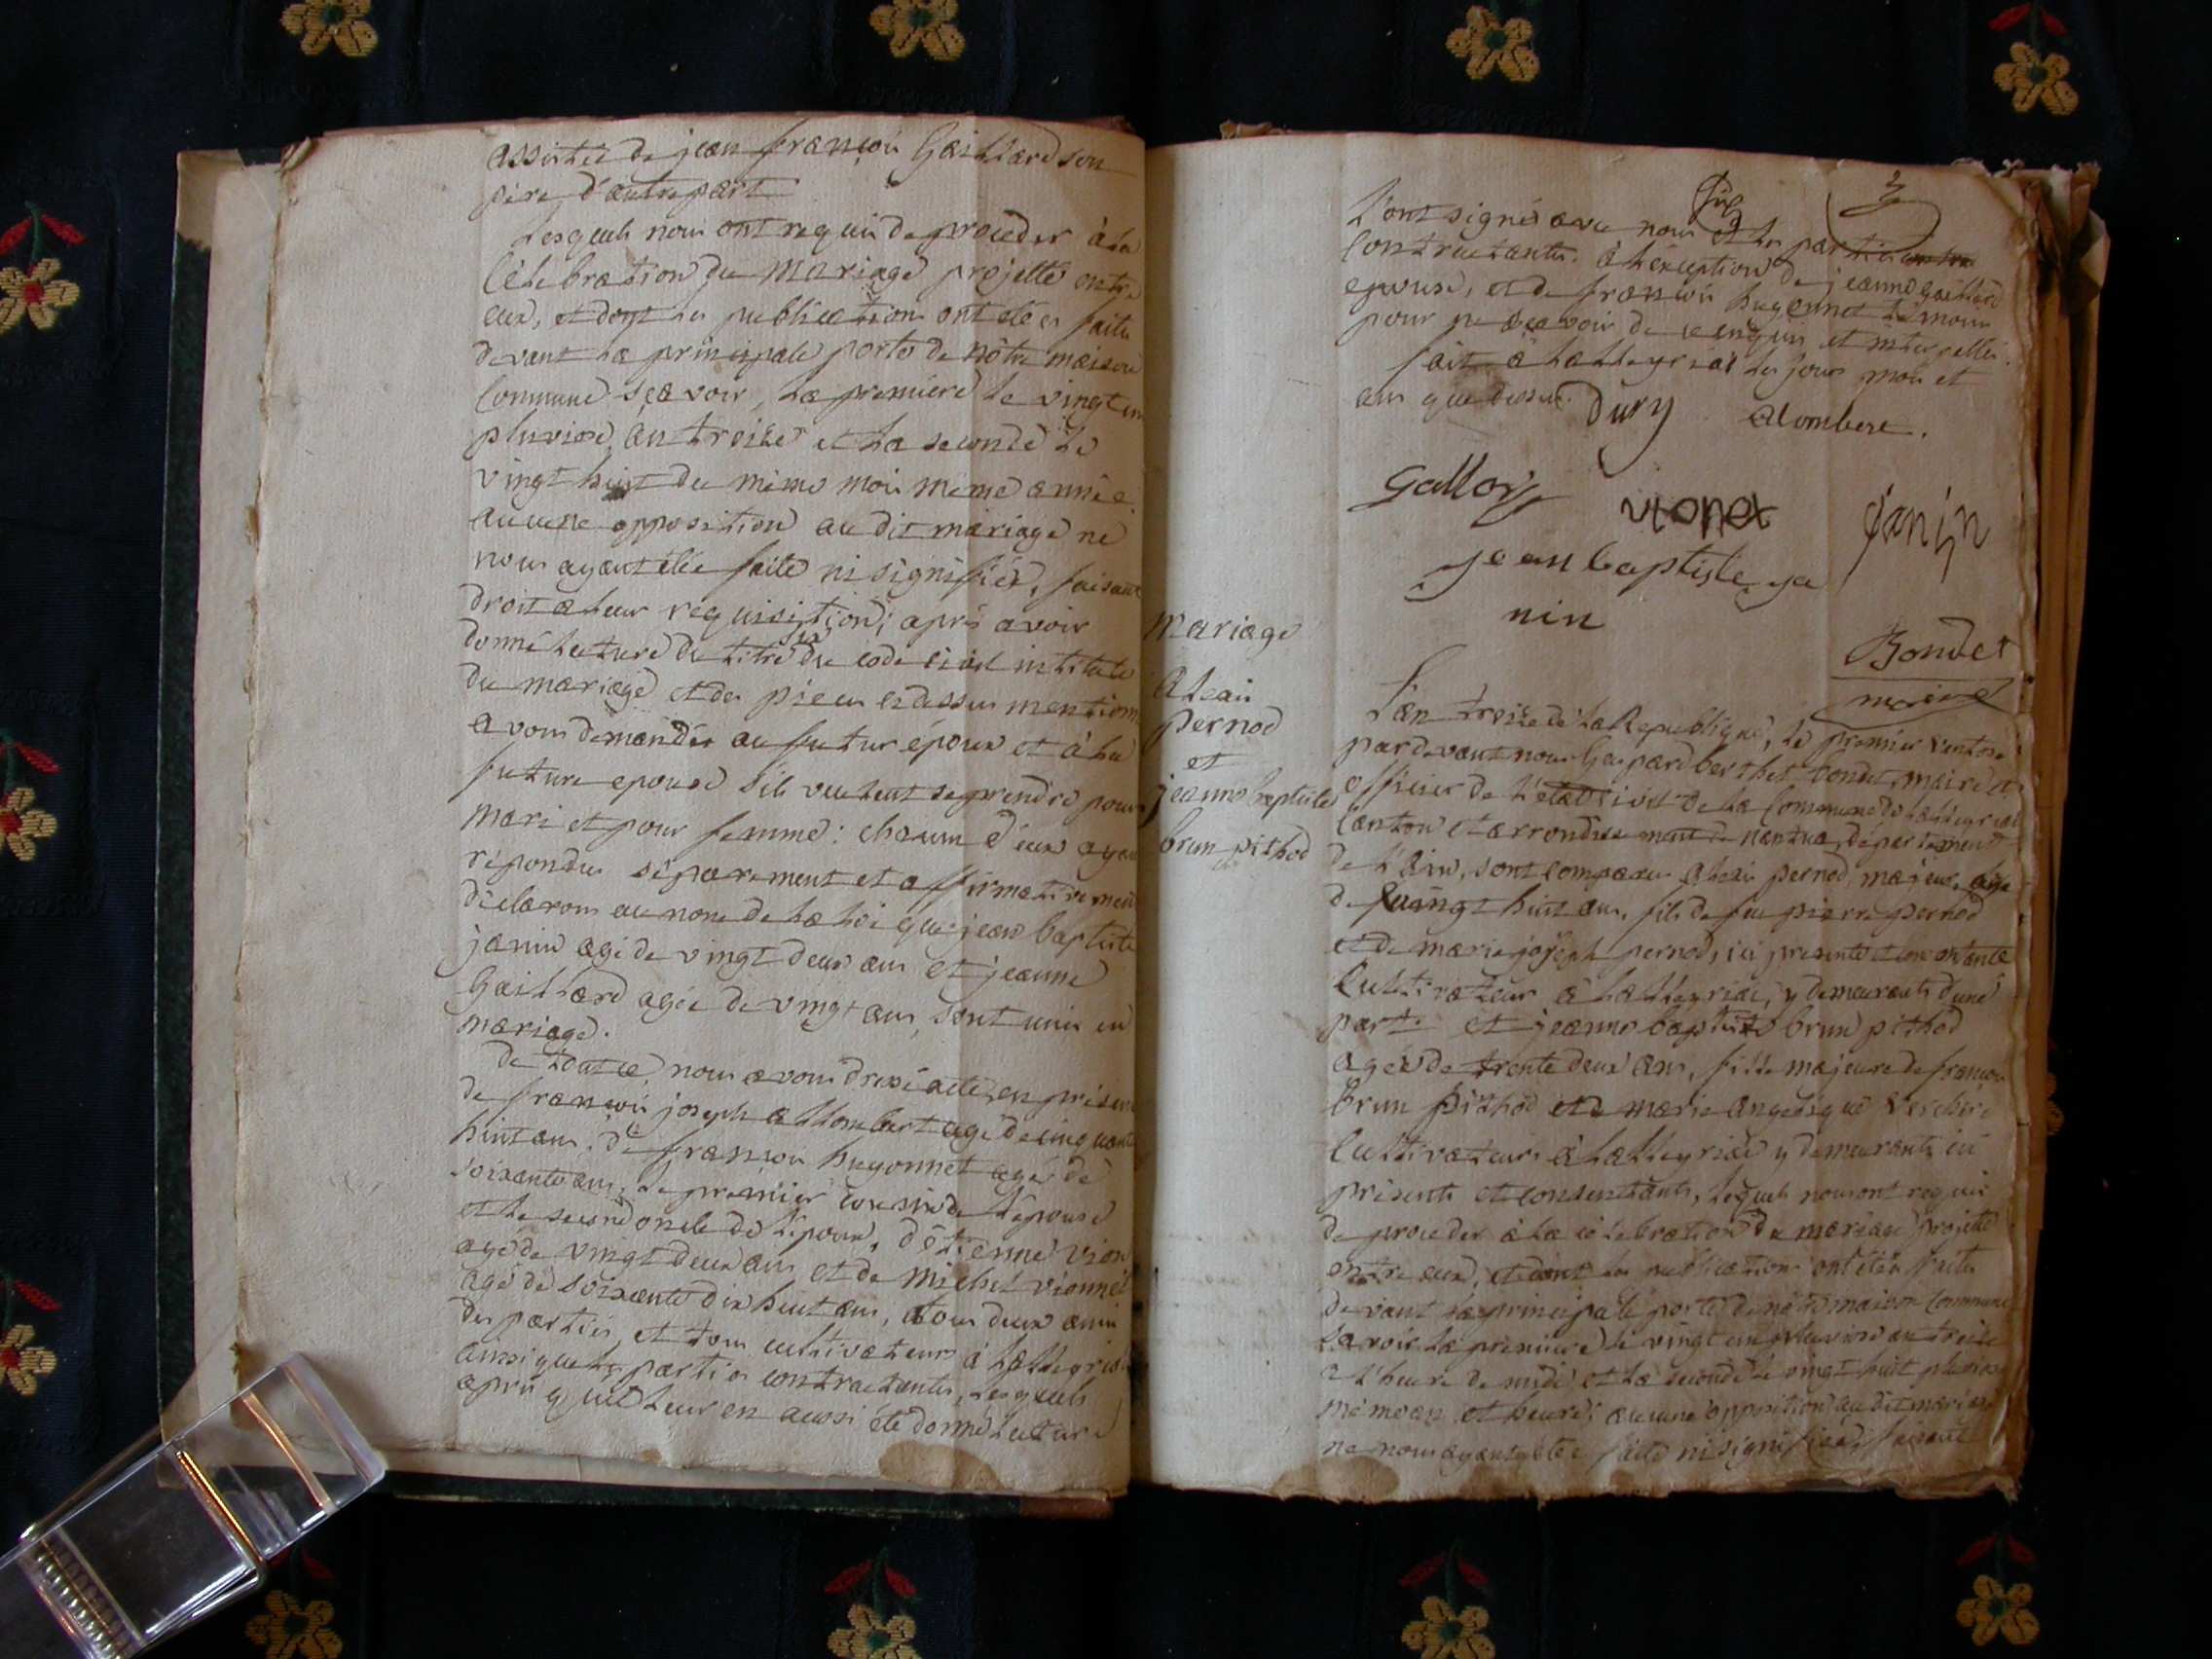 assistée de jean françois Gaillard son
père d'autre part
Lesquels nous ont requis de proceder à la
Célebration du Mariage projetté entre
eux, et dont les publications ont étées faites
devant la principale porte de nôtre maison
Commune sçavoir, la premiere le vingt un
pluviose an treize et la seconde le
vingt huit du même mois même année
aucune opposition au dit mariage ne
nous ayant étée faite ni signifiée, faisant
droit a leur requisition; aprés avoir
donné lecture du titre du code civil intitulé
du mariage et des pieces cidessus mention
avons demandés au futur époux et à la
future epouse s'ils veulent se prendre pour
mari et pour femme: chacun d'eux ayant
répondus séparement et affirmativement
déclarons au nom de la loi que jean baptiste
janin agé de vingt deux ans et jeanne
Gaillard agée de vingt ans, sont unis en
mariage.
de tout ce nous avons dressé acte, en présence
de françois joseph allombert agé de cinquante
huit ans, de françois hugonnet agé de
soixante ans, le premier cousin de l'épouse
et le second oncle de l'epoux, d'étienne vion
agé de vingt deux ans et de michel vionnet
agé de soixante dix huit ans, tous deux amis
des parties, et tous cultivateurs à lalleyriat
ainsi que les parties contractantes, lesquels
après qu'il leur en aussi été donné lecture
3
l'ont signés avec nous et les parties
Contractantes. à l'exception de jeanne gaillard
epouse, et de françois hugonnet témoin
pour ne sçavoir de ce enquis et interpellés.
fait à lalleyriat les jours mois et
ans que dessus. Dury alombere.
Galloy
vionet
janin
jean baptiste ja
nin
Bondet
maire
Mariage
Alexis
pernod
et
jeanne baptiste
brun pithod
L'an treize de la Republique, le premier ventose
pardevant nous Gaspard berthet bondet, maire et
officier de l'etat civil de la Commune de lalleyriat
Canton et arrondissement de nantua, département
de l'Ain, sont comparus alexis pernod, majeur, agé
de vingt huit ans, fils de feu pierre pernod
et de marie joseph pernod, ici presente et consentante
Cultivateur à lalleyriat, y demeurants d'une
part. et jeanne baptiste brun pithod
agée de trente deux ans, fille majeure de françois
brun pithod et de marie angelique Verchere
Cultivateurs à lalleyriat y demeurants ici
présents et consentants, lesquels nous ont requis
de proceder à la célebration du mariage projetté
entre eux, et dont les publications ont étés faites
devant la principale porte de nôtre maison commune
savoir la premiere le vingt un pluviose an treize
à l'heure de midi et la seconde le vingt huit pluviose
même an et heure; aucune opposition au dit mariage
ne nous ayant étée faite ni signifiée, faisant